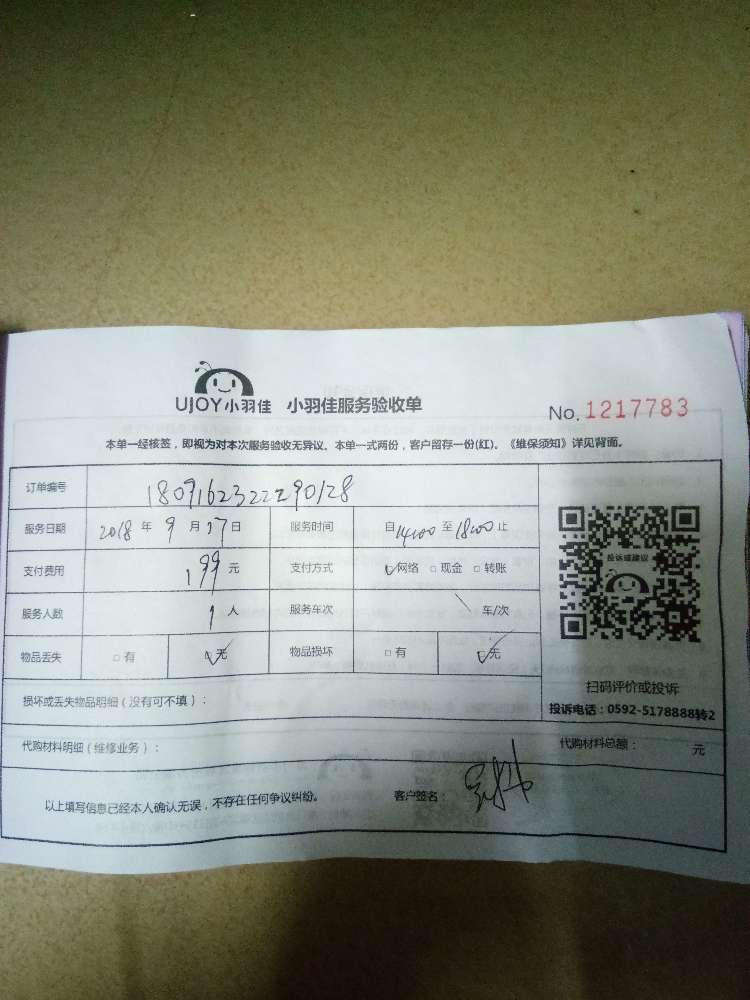 UJOY小羽佳 小羽佳服务验收单
No. 1217783
本单一经核签，即视为对本次服务验收无异议。本单一式两份，客户留存一份(红)。《维保须知》详见背面。
订单编号 18091623222290128
服务日期 2018 年 9 月 17 日 服务时间 自14:00 至 18:00 止
支付费用 199 元 支付方式 网络 □ 现金 □ 转账
服务人数 1 人 服务车次 \ 车/次
物品丢失 □ 有 ☑ 无 物品损坏 □ 有 ☑ 无
投诉或建议
扫码评价或投诉
投诉电话：0592-5178888转2
损坏或丢失物品明细（没有可不填）：
代购材料明细（维修业务）： 代购材料总额： 元
以上填写信息已经本人确认无误，不存在任何争议纠纷。 客户签名：